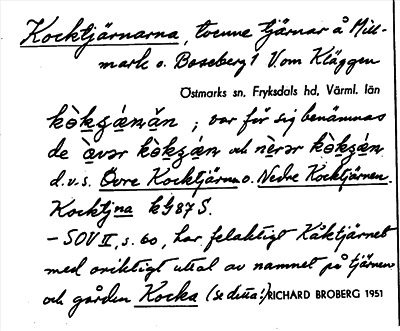 Kocktjärnarna, tvenne tjärnar å Mill-
mark o. Boseberg 1 V. om Kläggen
Östmarks sn. Fryksdals hd, Värml. län
kòkʂǽnăn ; var för sig benämnas
de ὰvər kòkʂǽn och nèrər kòkʂǽn
d.v.s. Övre Kocktjärnen o. Nedre Kocktjärnen.
Kocktjna kG 87 S.
– SOV II, s. 60, har felaktigt Kåktjärnet
med oriktigt uttal av namnet på tjärnen
och gården Kocka (se detta!) RICHARD BROBERG 1951